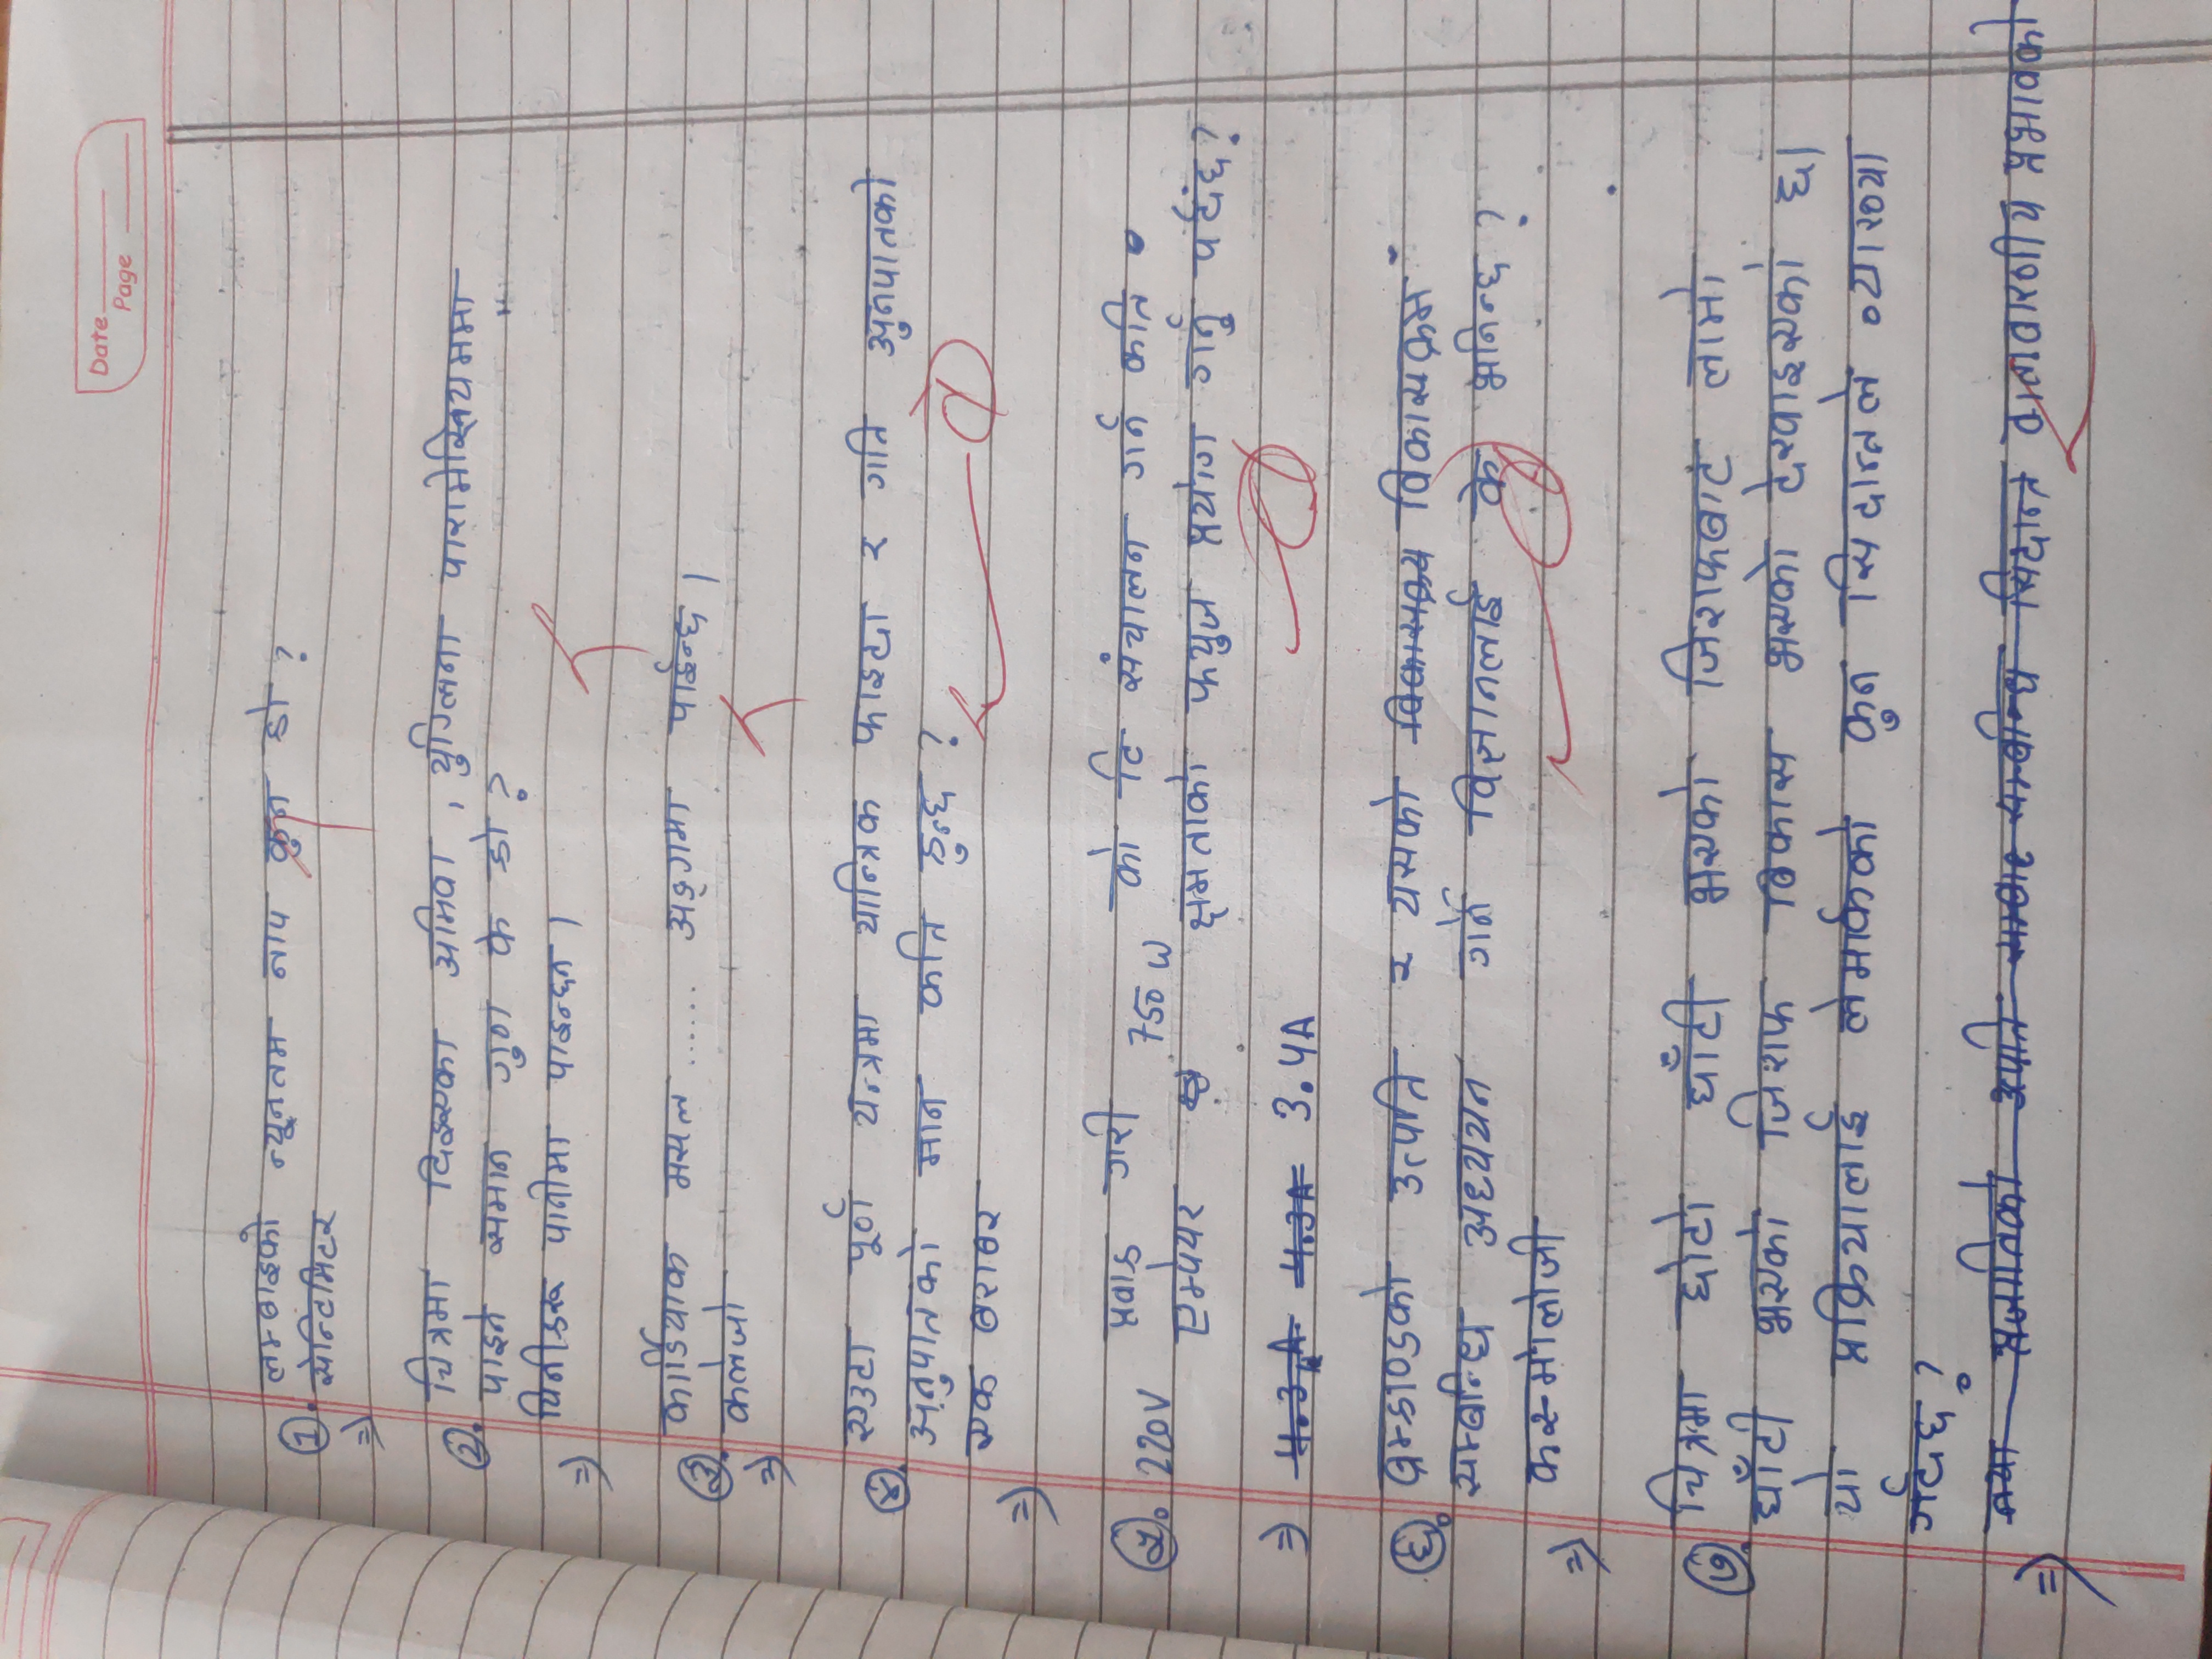 Date
Page
① लम्बाइको न्यूनतम नाप कुन हो ?
⇒ सेन्टिमिटर
②. चित्रमा दिइएका अमिवा , युग्लिना पारामेसियममा
पाइने समान गुण के हो ?
⇒ यिनीहरू पानीमा पाइन्छन ।
③. कार्डियाक मसल ...... अङ्गमा पाईन्छ ।
⇒ कलेजो
④. एउटा पूर्ण यन्त्रमा यान्त्रिक फाइदा र गति अुनपातको
अनुपातको मान कति हुन्छ ?
⇒ एक बराबर
⑤. 220V प्रवाह गरी 750 W को टि संचालन गर्न कति
एम्पेयर क्षमताको फयुज प्रयोग गर्नु पर्दछ ?
⇒ 4.3A 4.3A 3.4A
⑥. ब्रम्हाण्डको उत्पति र यसको विकासक्रम
सम्बन्धि अध्ययन गर्ने विज्ञानलाई के भनिन्छ ?
⇒ कस्मोलोजी
⑦. चित्रमा छोटो घाँटी भएको जिराफबाट लामो
घाँटी भएको जिराफ बिकास भएको देखाइएको छ।
यो प्रक्रियालाई लेमार्कको कुन सिदान्तले व्याख्या
गर्दछ ?
⇒ नया प्रजातिको उत्पति सम्बन्धि सिदान्त वातावारणीय प्रभावको